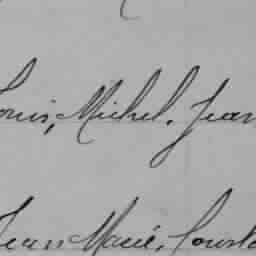 Louis, Michel, Jean
Jean Marie, Courte